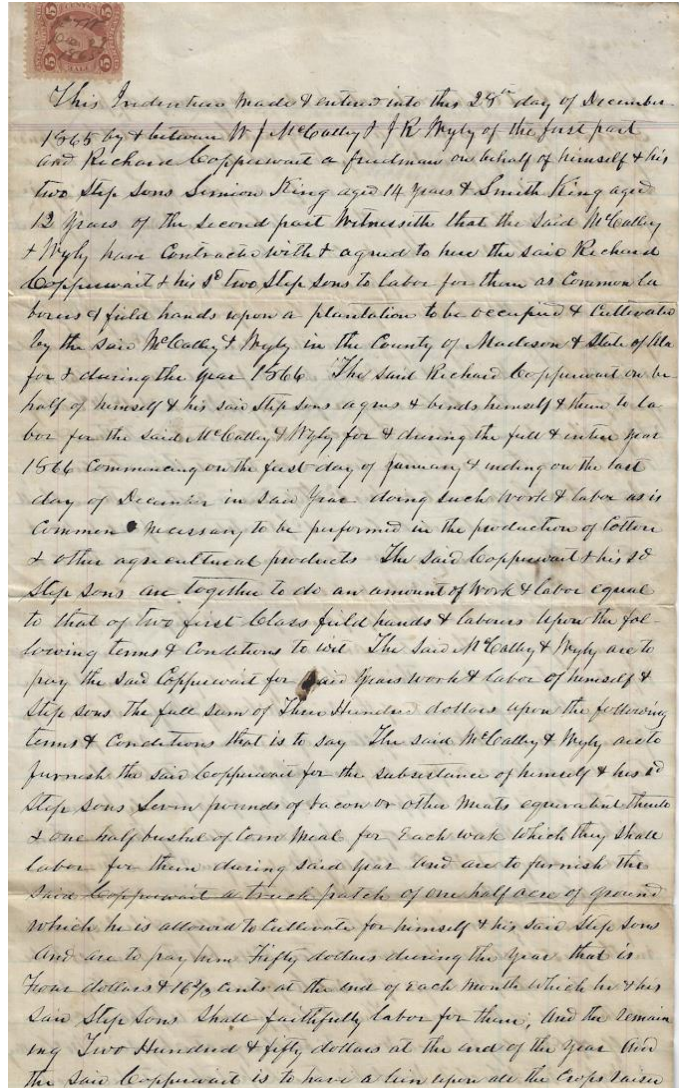 This Indenture made & entered into this 28th day of December
1865 by & between W J McCalley & J R Wyly of the first part
and Richard Copperwait a freedman on behalf of himself & his
two Step Sons Simion King aged 14 years & Smith King aged
12 Years of the second part Witnesseth that the said McCalley
& Wyly have Contracted with & agreed to hire the said Richard
Copperwait & his sd two Step sons to labor for them as Common la
borers & field hands upon a plantation to be occupied & Cultivated
by the said McCalley & Wyly in the County of Madison & State of Ala
for & during the year 1866 The said Richard Copperwait on be
half of himself & his said Step sons agrees & binds himself & them to la
bor for the said McCalley & Wyly for & during the full & intire year
1866 Commencing on the first day of January & ending on the last
day of December in said Year doing such work & labor as is
Common necessary to be performed in the production of Cotton
& other agricultural products The said Copperwait & his sd
Step sons are together to do an amount of work & labor equal
to that of two first Class field hands & labours upon the fol-
lowing terms & Conditions to wit The said McCalley & Wyly are to
pay the said Copperwait for said years work & labor of himself &
Step sons the full sum of Three Hundred dollars upon the following
terms & Conditions that is to say The said McCalley & Wyly are to
furnish the said Copperwait for the subsistance of himself & his sd
Step sons Seven pounds of bacon or other meats equivalent thereto
& one half bushel of Corn Meal for Each week which they shall
labor for them during said year and are to furnish the
said Copperwait a truck patch of one half acre of ground
which he is allowed to Cultivate for himself & his said Step sons
And are to pay him Fifty dollars during the year that is
Four dollars & 16 2/3 cents at the end of each month which he & his
said Step Sons shall faithfully labor for them, And the remain
ing Two Hundred & fifty dollars at the end of the year And
the said Copperwait is to have a lien upon all the Crops raised